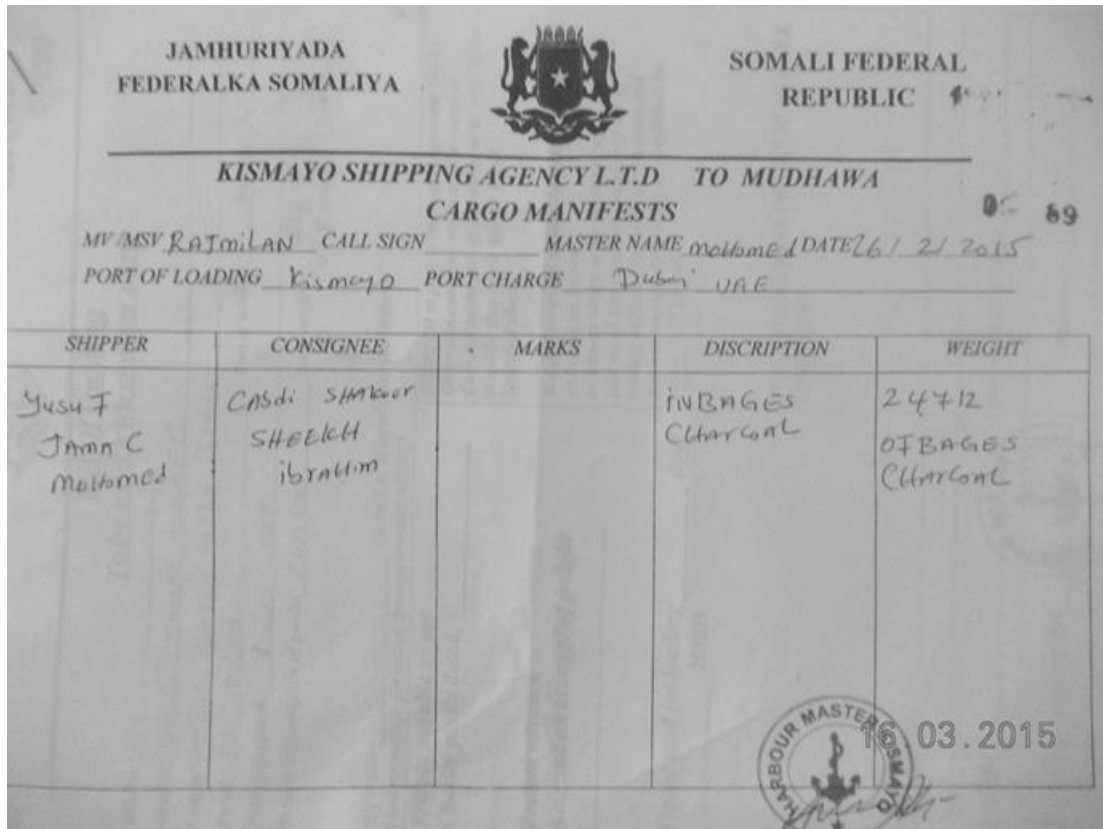 JAMHURIYADA
FEDERALKA SOMALIYA
SOMALI FEDERAL
REPUBLIC
KISMAYO SHIPPING AGENCY L.T.D TO MUDHAWA
CARGO MANIFESTS
89
MV /MSV RAJmiLAN CALL SIGN MASTER NAME moHomEd DATE 26/ 2/ 2015
PORT OF LOADING Kismayo PORT CHARGE Dubai UAE
SHIPPER CONSIGNEE MARKS DISCRIPTION WEIGHT
YusuF CABdi SHAkoor iNBAGES 24712
JAMA C SHEEKH CHArCoAL OFBAGES
MoHomed ibrAHim CHArCoAL
HARBOUR MASTER KISMAYO
16 03.2015